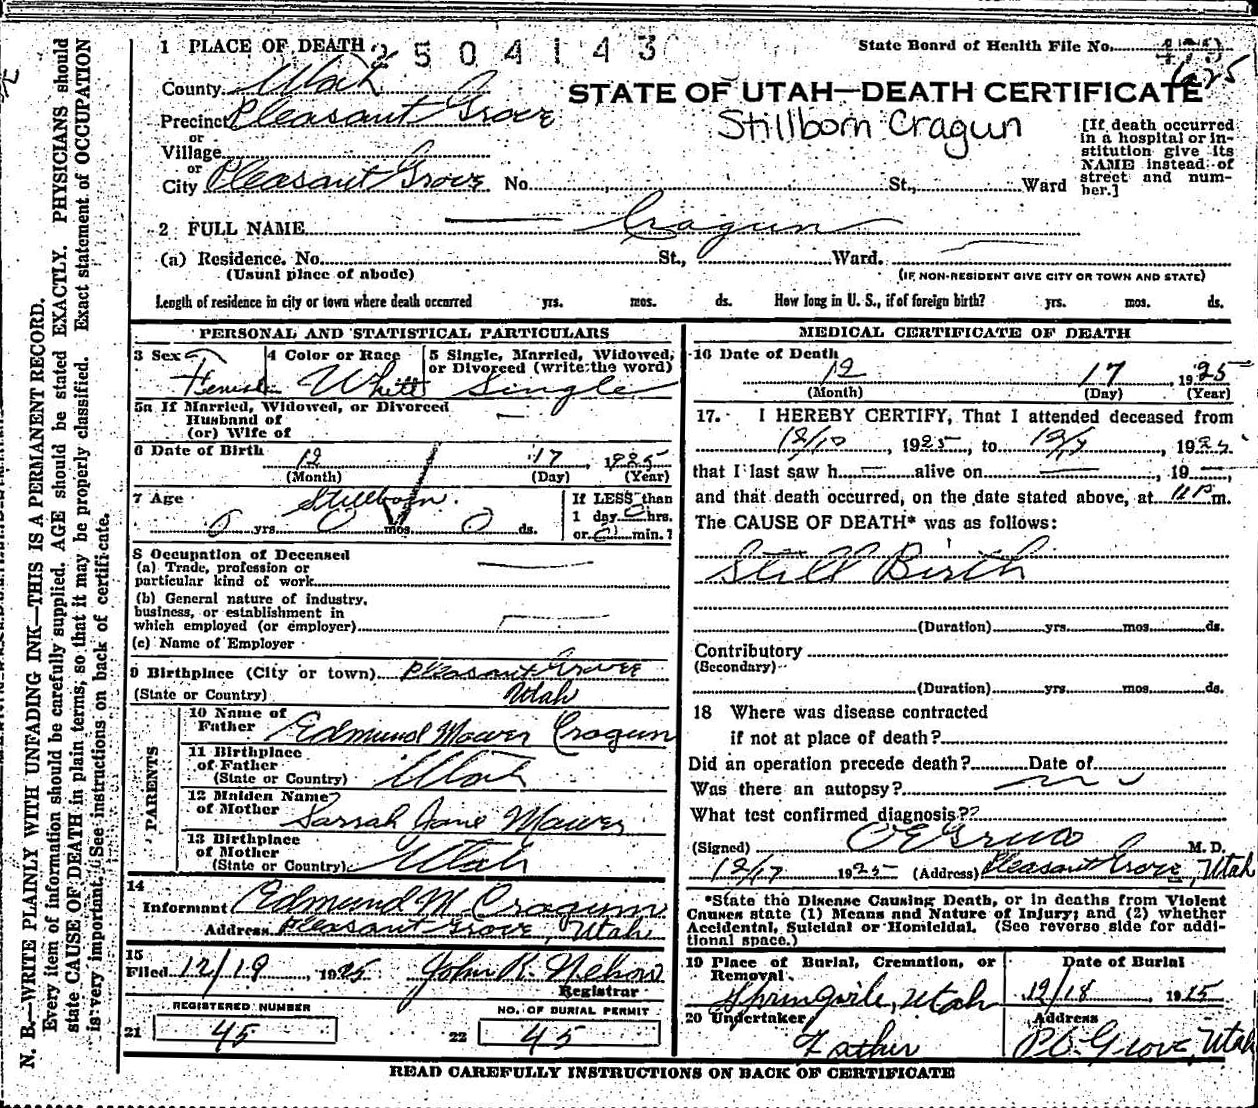 N. B.—WRITE PLAINLY WITH UNFADING INK—THIS IS A PERMANENT RECORD.
Every item of information should be carefully supplied. AGE should be stated EXACTLY. PHYSICIANS should
state CAUSE OF DEATH in plain terms, so that it may be properly classified. Exact statement of OCCUPATION
is very important. See instructions on back of certificate.
1 PLACE OF DEATH 2504143
State Board of Health File No. 625
County Utah
STATE OF UTAH—DEATH CERTIFICATE
Precinct Pleasant Grove
Stillborn Cragun
or
Village
or
City Pleasant Grove No. St., Ward
[If death occurred
in a hospital or in-
stitution give its
NAME instead of
street and num-
ber.]
2 FULL NAME Cragun
(a) Residence. No. St., Ward.
(Usual place of abode) (IF NON-RESIDENT GIVE CITY OR TOWN AND STATE)
Length of residence in city or town where death occurred yrs. mos. ds. How long in U. S., if of foreign birth? yrs. mos. ds.
PERSONAL AND STATISTICAL PARTICULARS
3 Sex 4 Color or Race 5 Single, Married, Widowed,
or Divorced (write the word)
White Single
5a If Married, Widowed, or Divorced
Husband of
(or) Wife of
6 Date of Birth
12 17 1925
(Month) (Day) (Year)
7 Age Stillborn. If LESS than
1 day 0 hrs.
0 yrs. 0 mos. 0 ds. or 0 min.?
8 Occupation of Deceased
(a) Trade, profession or
particular kind of work
(b) General nature of industry,
business, or establishment in
which employed (or employer)
(c) Name of Employer
9 Birthplace (City or town) Pleasant Grove
(State or Country) Utah
PARENTS
10 Name of
Father Edmund Mower Cragun
11 Birthplace
of Father
(State or Country) Utah
12 Maiden Name
of Mother Sarrah Jane Mower
13 Birthplace
of Mother
(State or Country) Utah
14
Informant Edmund M Cragun
Address Pleasant Grove, Utah
15
Filed 12/19, 1925 John R. Nelson
Registrar
REGISTERED NUMBER NO. OF BURIAL PERMIT
21 45 22 45
MEDICAL CERTIFICATE OF DEATH
16 Date of Death
12 17, 1925
(Month) (Day) (Year)
17. I HEREBY CERTIFY, That I attended deceased from
12/10 1925 to 12/17 1925
that I last saw h alive on 19
and that death occurred, on the date stated above, at 11 P m.
The CAUSE OF DEATH* was as follows:
Still Birth
(Duration) yrs. mos. ds.
Contributory
(Secondary)
(Duration) yrs. mos. ds.
18 Where was disease contracted
if not at place of death?
Did an operation precede death? Date of
Was there an autopsy? no
What test confirmed diagnosis?
(Signed) M. D.
12/17 1925 (Address) Pleasant Grove, Utah
*State the Disease Causing Death, or in deaths from Violent
Causes state (1) Means and Nature of Injury; and (2) whether
Accidental, Suicidal or Homicidal. (See reverse side for addi-
tional space.)
19 Place of Burial, Cremation, or
Removal Date of Burial
Springville, Utah 12/18 1925
20 Undertaker Address
Father Pl. Grove, Utah
READ CAREFULLY INSTRUCTIONS ON BACK OF CERTIFICATE